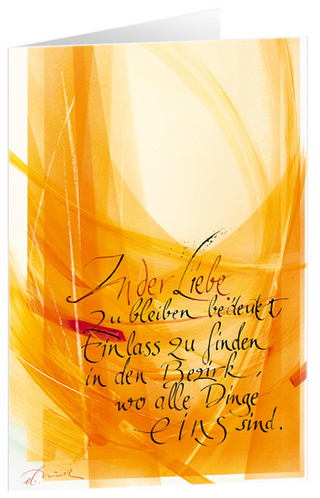 In der Liebe
zu bleiben bedeutet
Einlass zu finden
in den Bezirk,
wo alle Dinge
eins sind.